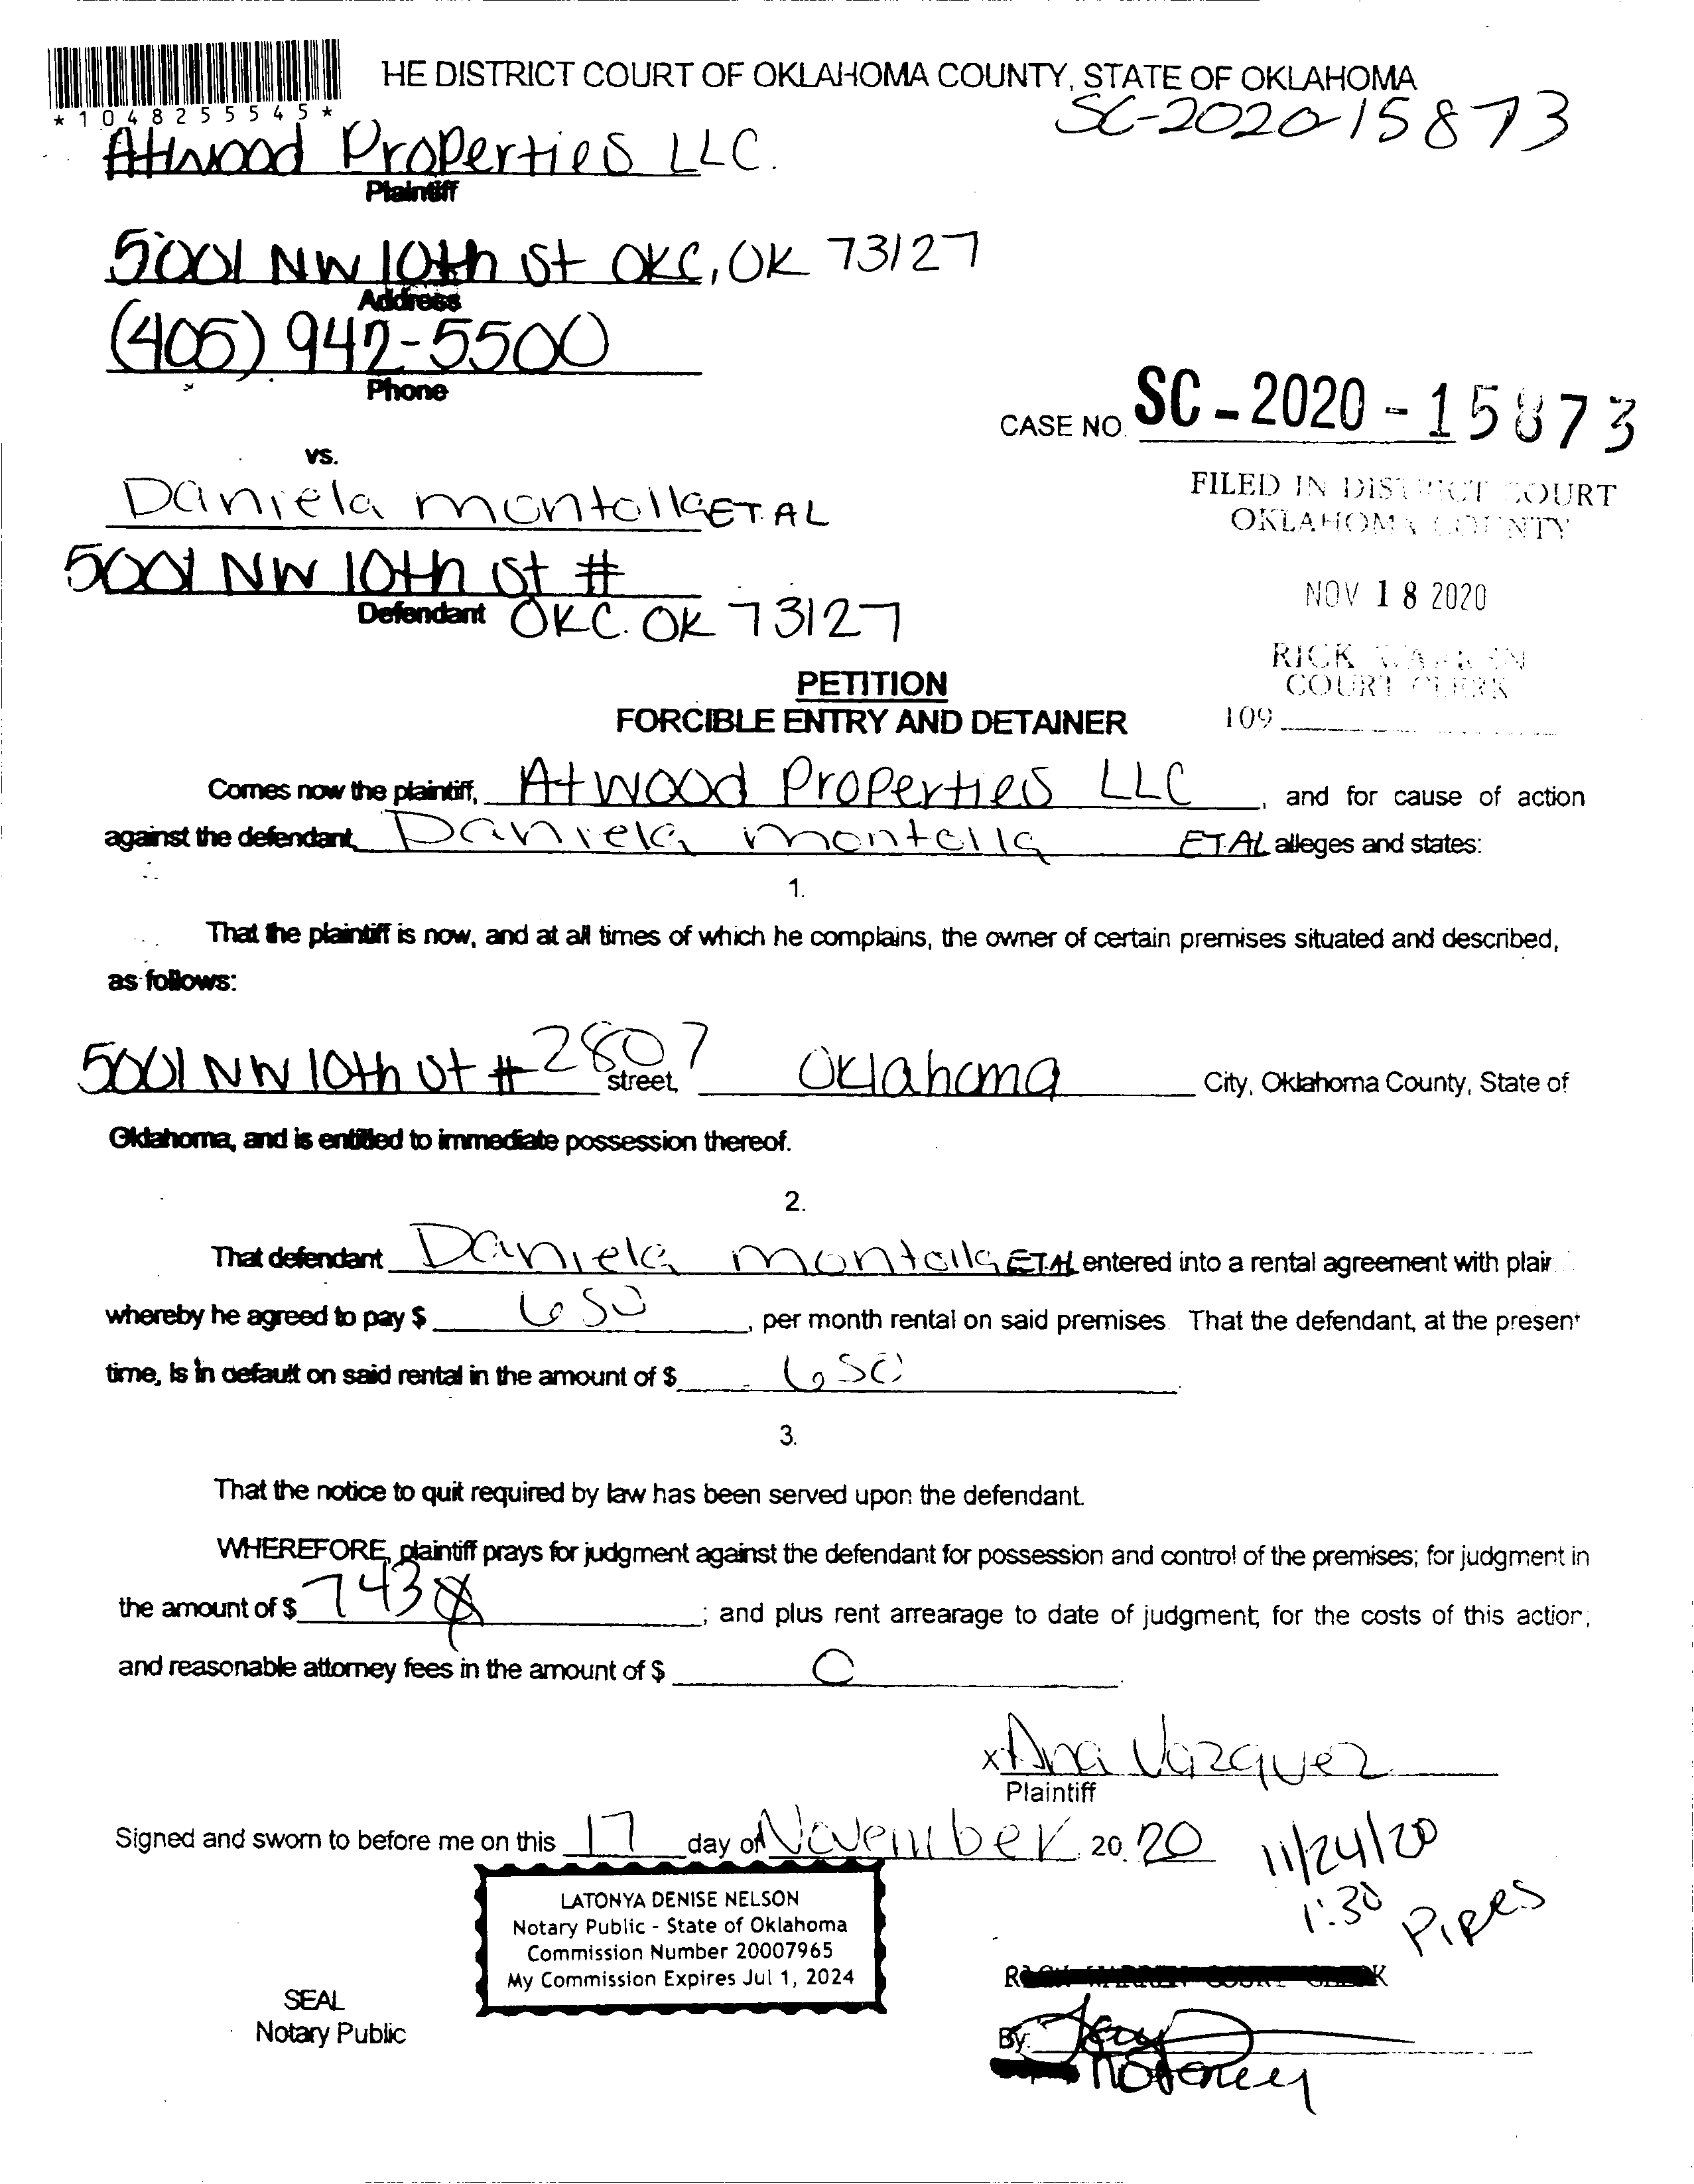 HE DISTRICT COURT OF OKLAHOMA COUNTY, STATE OF OKLAHOMA
*1048255545*
SC-2020-15873
Atwood Properties LLC.
Plaintiff
5001 NW 10th St OKC, OK 73127
Address
(405) 942-5500
Phone
CASE NO. SC-2020-15873
vs.
Daniela montolla ET. AL
FILED IN DISTRICT COURT
OKLAHOMA COUNTY
5001 NW 10th St #
Defendant OKC. OK 73127
NOV 18 2020
RICK WARREN
COURT CLERK
109
PETITION
FORCIBLE ENTRY AND DETAINER
Comes now the plaintiff, Atwood Properties LLC, and for cause of action
against the defendant, Daniela montolla ET.AL alleges and states:
1.
That the plaintiff is now, and at all times of which he complains, the owner of certain premises situated and described,
as follows:
5001 NW 10th St # 2807 street, Oklahoma City, Oklahoma County, State of
Oklahoma, and is entitled to immediate possession thereof.
2.
That defendant Daniela montolla ET.AL entered into a rental agreement with plair
whereby he agreed to pay $ 650, per month rental on said premises. That the defendant, at the present
time, is in default on said rental in the amount of $ 650.
3.
That the notice to quit required by law has been served upon the defendant.
WHEREFORE, plaintiff prays for judgment against the defendant for possession and control of the premises; for judgment in
the amount of $ 743; and plus rent arrearage to date of judgment; for the costs of this action;
and reasonable attorney fees in the amount of $ 0.
x Ana Vazquez
Plaintiff
Signed and sworn to before me on this 17 day of November 2020
11/24/20
1:30 Pipes
LATONYA DENISE NELSON
Notary Public - State of Oklahoma
Commission Number 20007965
My Commission Expires Jul 1, 2024
SEAL
Notary Public
By: